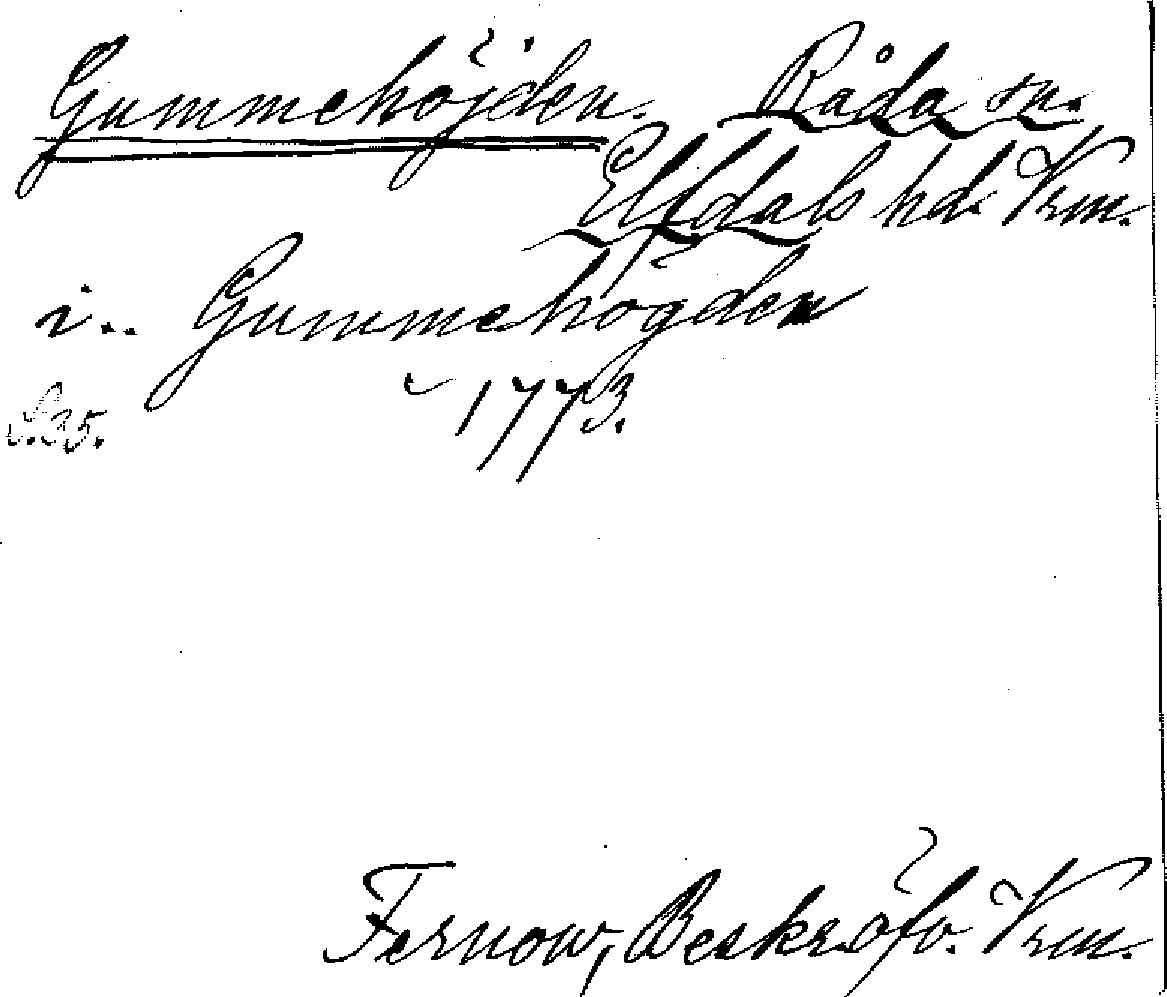 Gummehöjden. Råda sn.
Elfdals hd. Vrm.
i.. Gummehögden
1773.
S.35.
Fernow, Beskr. öfv. Vrm.